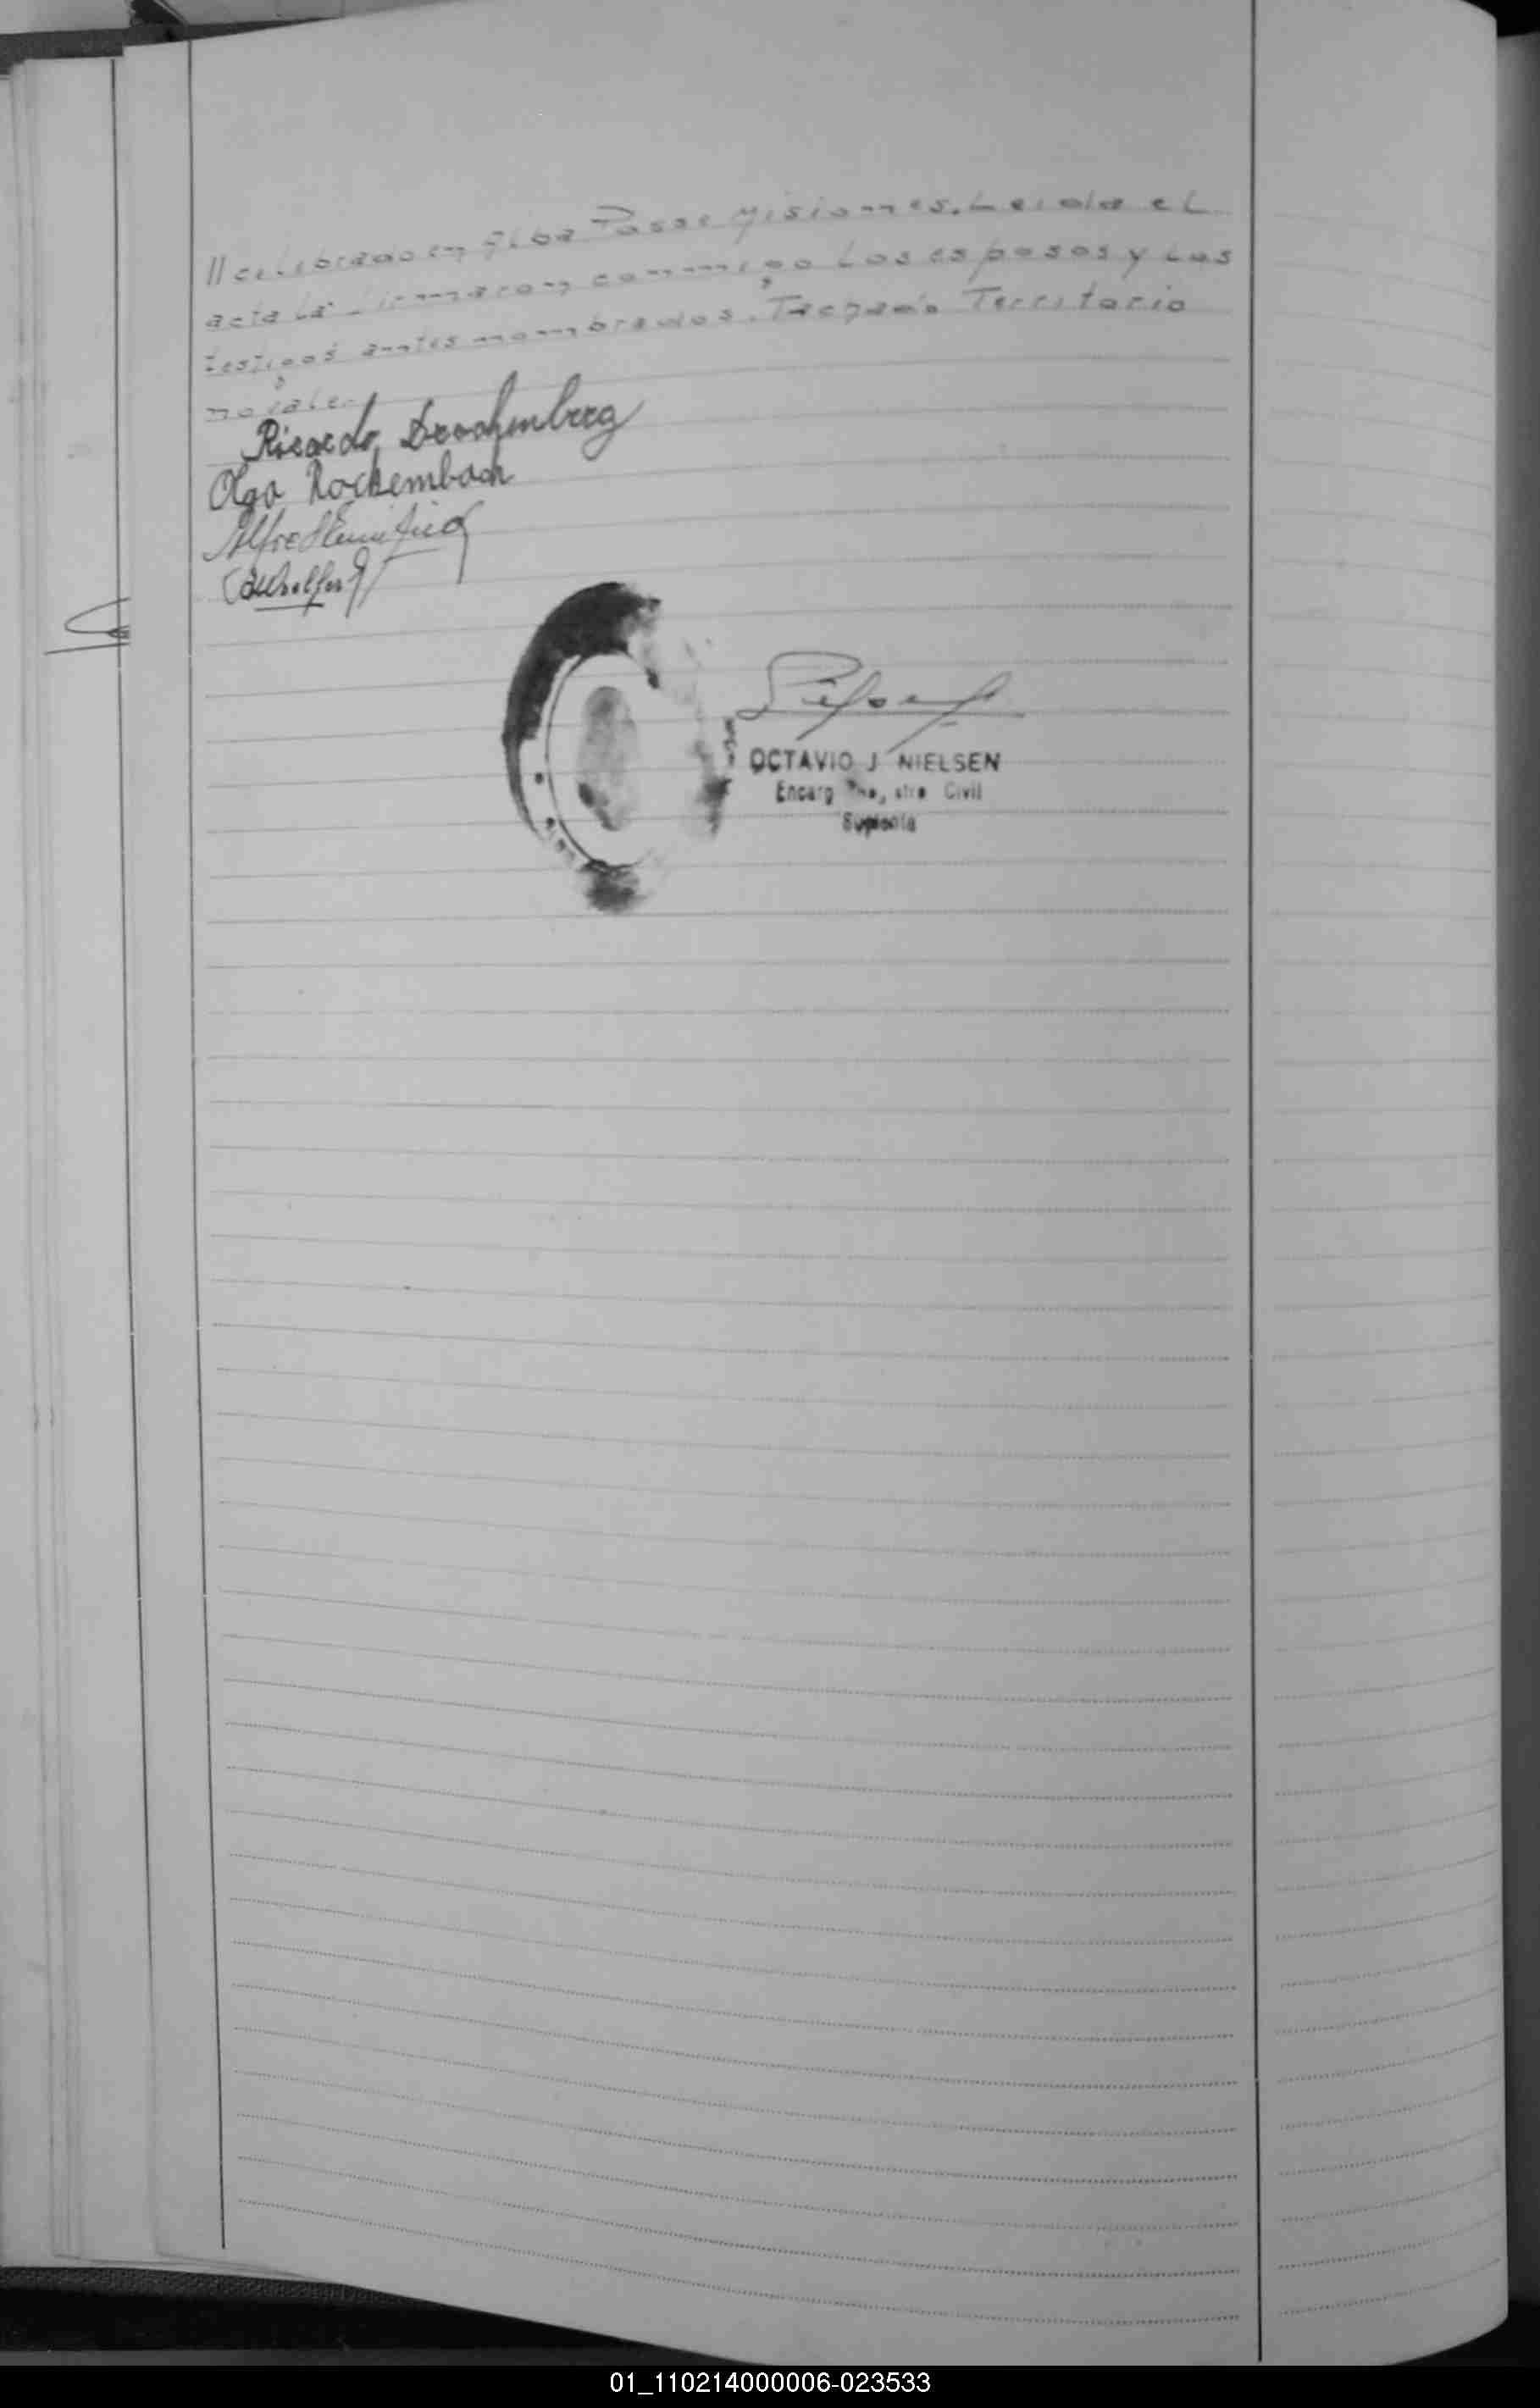 //celebrado en Alba Posse Misiones. Leida el
acta la firmaron conmigo los esposos y los
testigos antes nombrados. Tachado Territorio
no vale.
Ricardo Drachenberg
Olga Rockembach
OCTAVIO J NIELSEN
Encarg Civil
Suplente
01_110214000006-023533